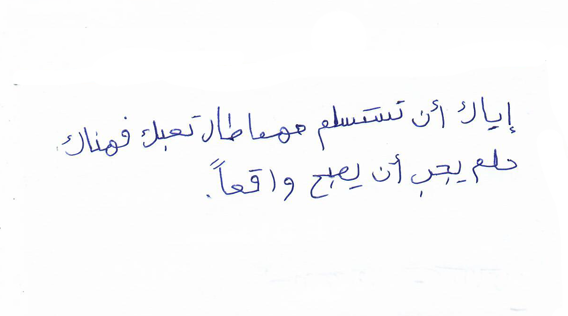 إياك أن تستسلم مهما طال تعبك فهناك
حلم يجب أن يصبح واقعاً.